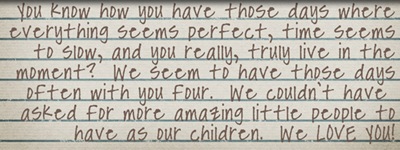 You know how you have those days where
everything seems perfect, time seems
to slow, and you really, truly live in the
moment? We seem to have those days
often with you four. We couldn't have
asked for more amazing little people to
have as our children. We LOVE YOU!